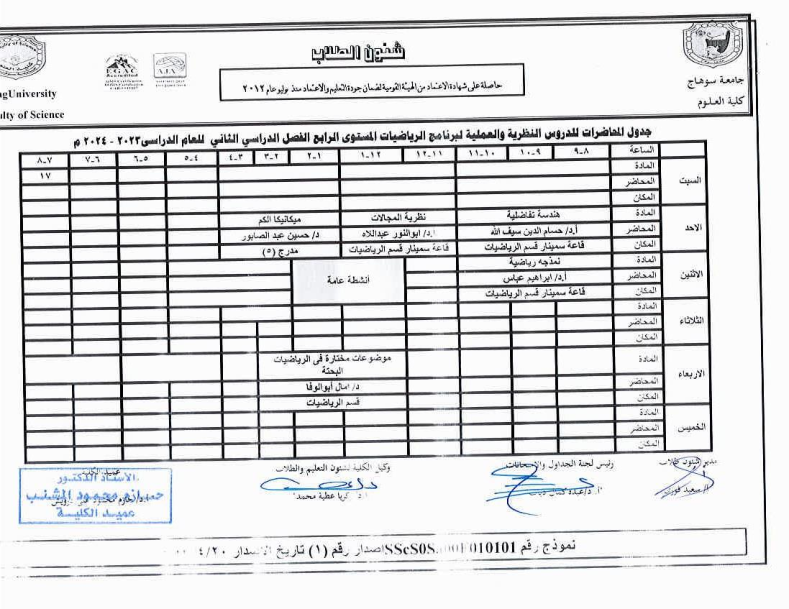 شئون الطلاب
حاصلة على شهادة الاعتماد من الهيئة القومية لضمان جودة التعليم والاعتماد منذ يوليو عام ٢٠١٢
جامعة سوهاج
كلية العلوم
agUniversity
ulty of Science
جدول المحاضرات للدروس النظرية والعملية لبرنامج الرياضيات المستوى الرابع الفصل الدراسي الثاني للعام الدراسى ٢٠٢٣ - ٢٠٢٤ م
الساعة ٨-٩ ٩-١٠ ١٠-١١ ١١-١٢ ١٢-١ ١-٢ ٢-٣ ٣-٤ ٤-٥ ٥-٦ ٦-٧ ٧-٨
السبت
المادة ١٧
المحاضر
المكان
الاحد
المادة هندسة تفاضلية نظرية المجالات ميكانيكا الكم
المحاضر أ.د/ حسام الدين سيف الله ا.د/ ابوالنور عبداللاه د/ حسين عبد الصابور
المكان قاعة سمينار قسم الرياضيات قاعة سمينار قسم الرياضيات مدرج (٥)
الاثنين
المادة نمذجه رياضية
المحاضر أ.د/ ابراهيم عباس
المكان قاعة سمينار قسم الرياضيات
أنشطة عامة
الثلاثاء
المادة
المحاضر
المكان
الاربعاء
المادة موضوعات مختارة فى الرياضيات
البحتة
المحاضر د/ امال أبوالوفا
المكان قسم الرياضيات
الخميس
المادة
المحاضر
المكان
مدير شئون طلاب رئيس لجنة الجداول والامتحانات وكيل الكلية لشئون التعليم والطلاب عميد الكلية
الأستاذ الدكتور
عميد الكلية
نموذج رقم اصدار رقم (١) تاريخ الاصدار